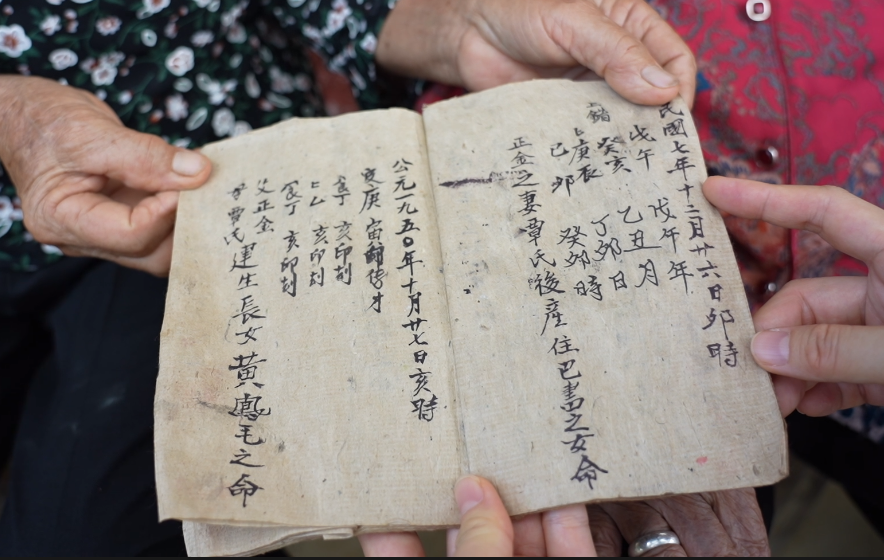 民國七年十二月廿六日卯時
戊午 戊午年
癸亥 乙丑月
庚辰 丁卯日
己卯 癸卯時
正金之妻覃氏後産住巴書之女命
公元一九五〇年十月廿七日亥時
庚庚
亥印刻
亥印刻
亥印刻
父正金
建生長女黃鳳毛之命